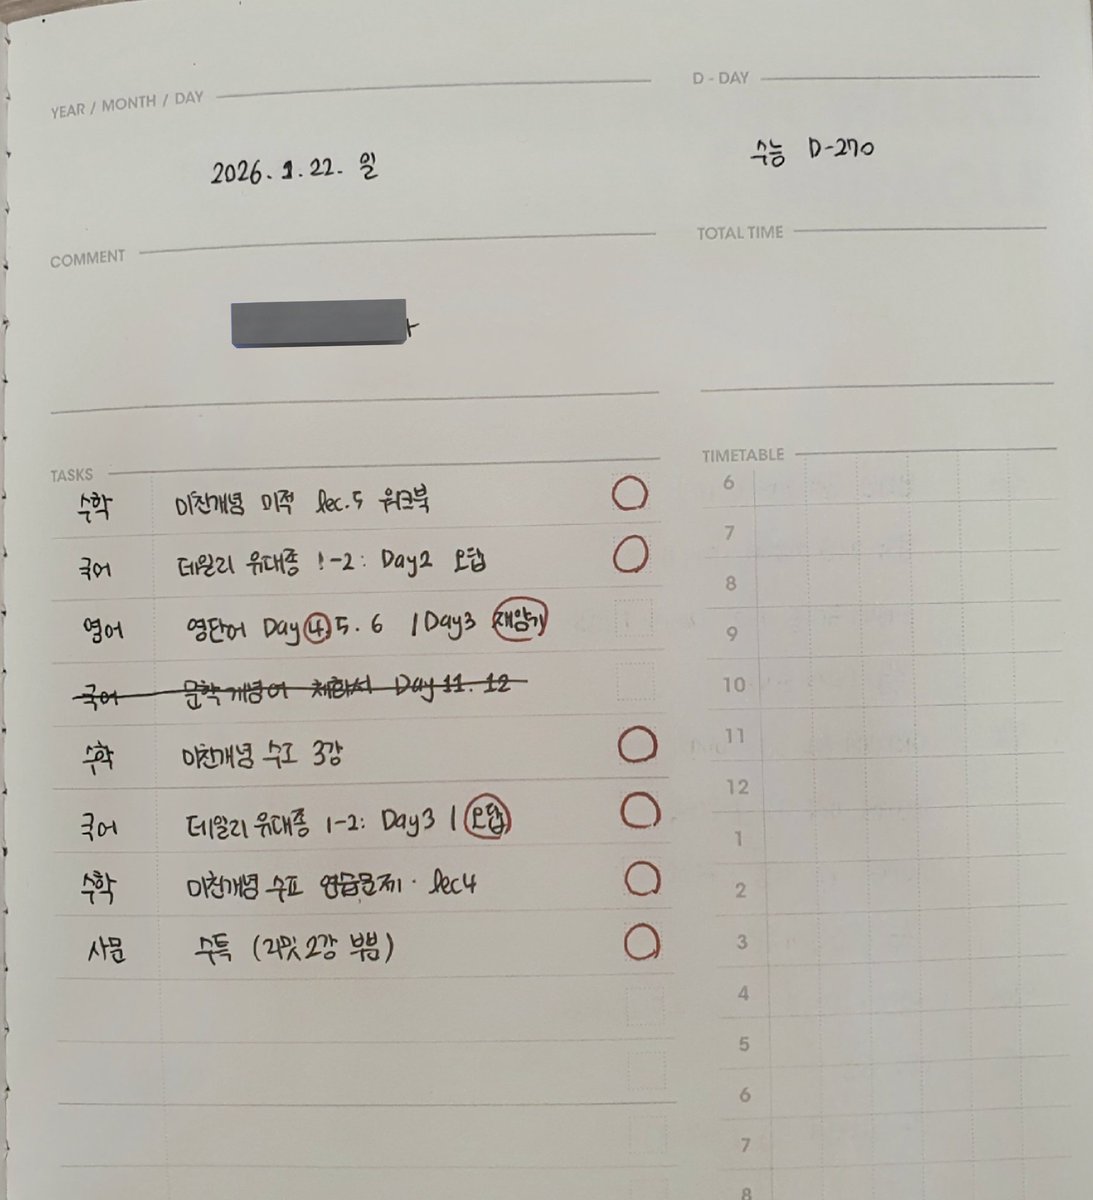 YEAR / MONTH / DAY
2026. 1. 22. 일
D - DAY
수능 D-270
COMMENT
TOTAL TIME
TASKS
수학 미친개념 미적 lec.5 워크북
국어 데일리 유대종 1-2: Day2 오답
영어 영단어 Day 4, 5. 6 / Day3 재암기
국어 문학개념어 Day 11. 12
수학 미친개념 수1 3강
국어 데일리 유대종 1-2: Day3 / 오답
수학 미친개념 연습문제 · lec4
사문 수특 (리밋 2강 부분)
TIMETABLE
6
7
8
9
10
11
12
1
2
3
4
5
6
7
8